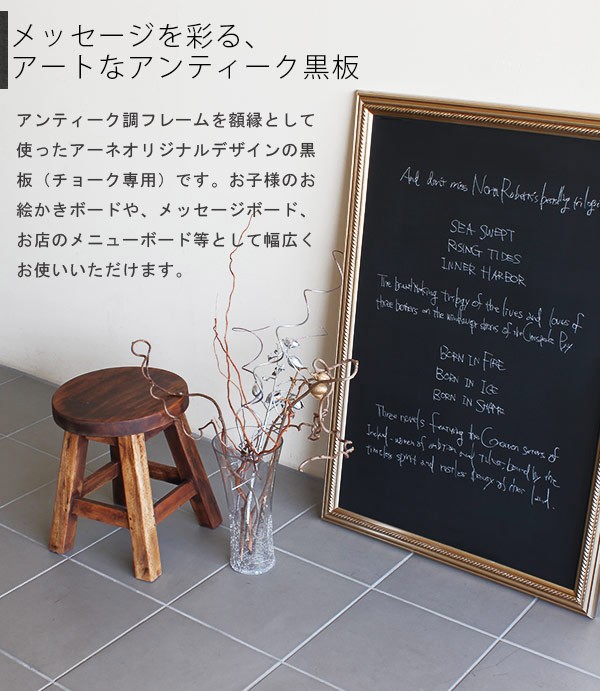 メッセージを彩る、
アートなアンティーク黒板
アンティーク調フレームを額縁として
使ったアーネオリジナルデザインの黒
板（チョーク専用）です。お子様のお
絵かきボードや、メッセージボード、
お店のメニューボード等として幅広く
お使いいただけます。
And don't miss Nora Roberts's bestselling trilogies
SEA SWEPT
RISING TIDES
INNER HARBOR
The breathtaking trilogy of the lives and loves of
three brothers on the windswept shores of the Chesapeake Bay
BORN IN FIRE
BORN IN ICE
BORN IN SHAME
Three novels featuring the Concannon sisters of
Ireland, women of ambition and talent bound by the
timeless spirit and restless beauty of their land.